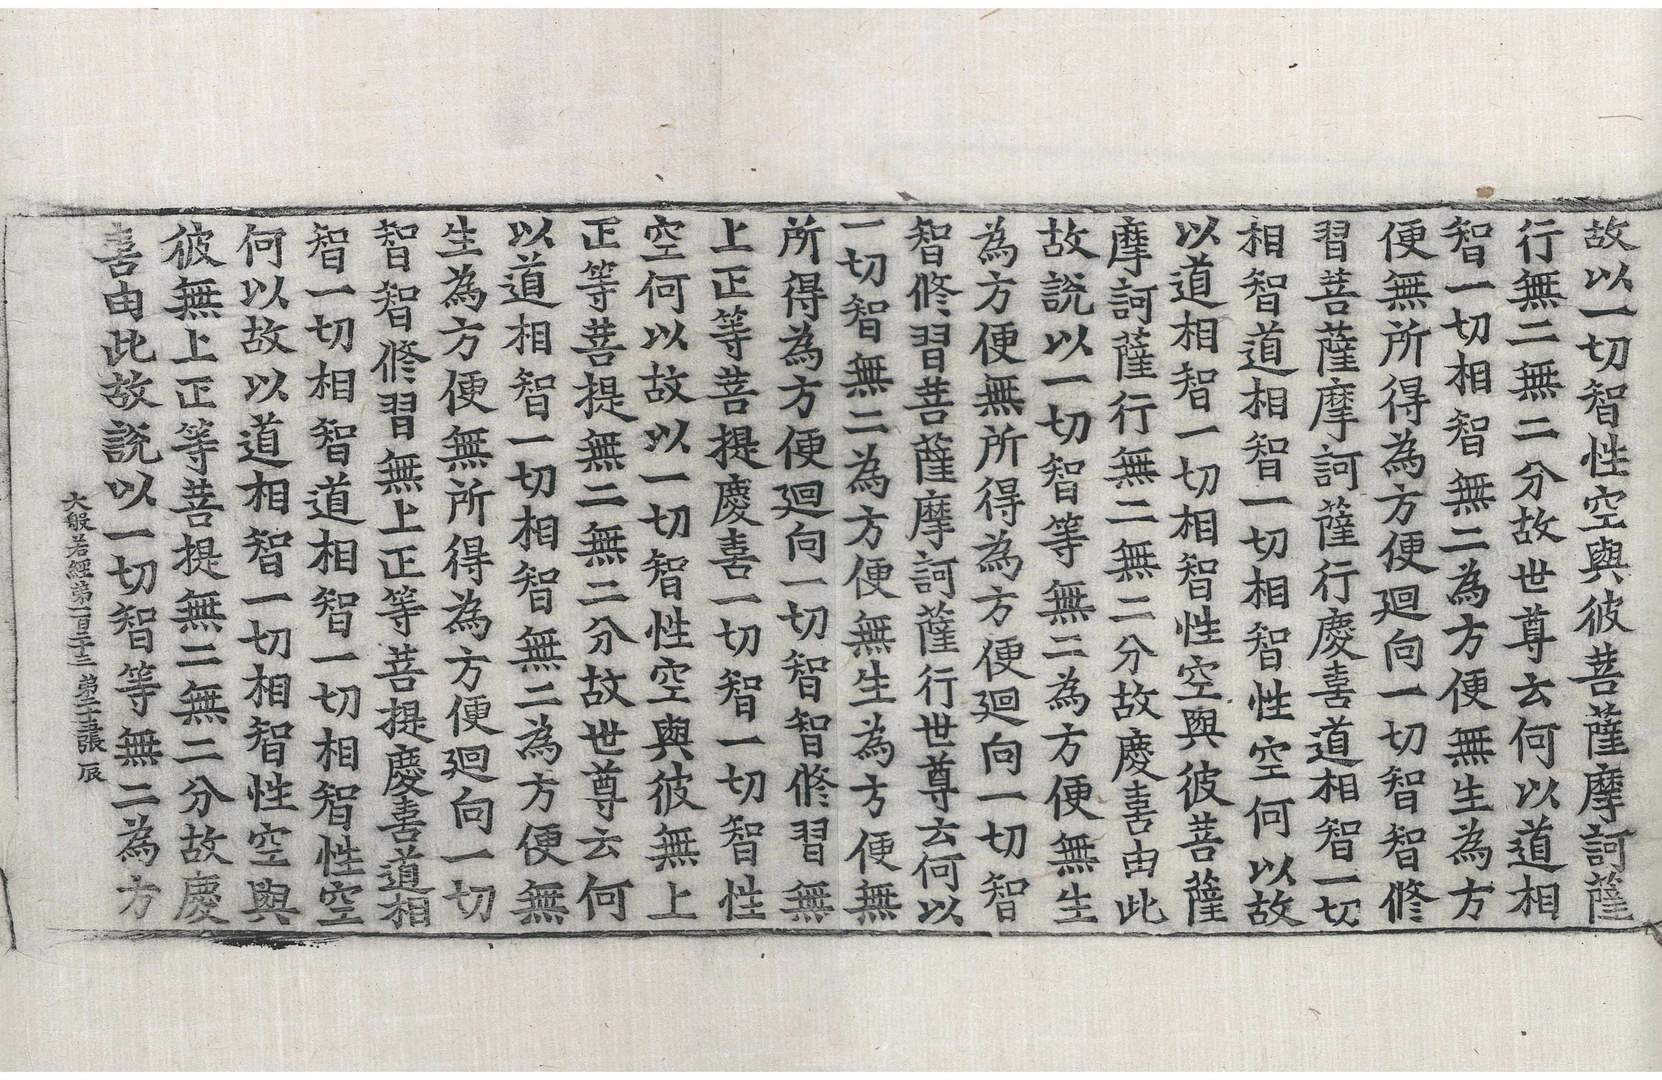 故以一切智性空與彼菩薩摩訶薩
行無二無二分故世尊云何以道相
智一切相智無二為方便無生為方
便無所得為方便廻向一切智智修
習菩薩摩訶薩行慶喜道相智一切
相智道相智一切相智性空何以故
以道相智一切相智性空與彼菩薩
摩訶薩行無二無二分故慶喜由此
故說以一切智等無二為方便無生
為方便無所得為方便廻向一切智
智修習菩薩摩訶薩行世尊云何以
一切智無二為方便無生為方便無
所得為方便廻向一切智智修習無
上正等菩提慶喜一切智一切智性
空何以故以一切智性空與彼無上
正等菩提無二無二分故世尊云何
以道相智一切相智無二為方便無
生為方便無所得為方便廻向一切
智智修習無上正等菩提慶喜道相
智一切相智道相智一切相智性空
何以故以道相智一切相智性空與
彼無上正等菩提無二無二分故慶
喜由此故說以一切智等無二為方
大般若經第一百二十三 張 辰